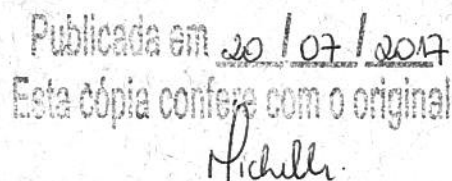 Publicada em 20/07/2017
Esta cópia confere com o original
Michelly.